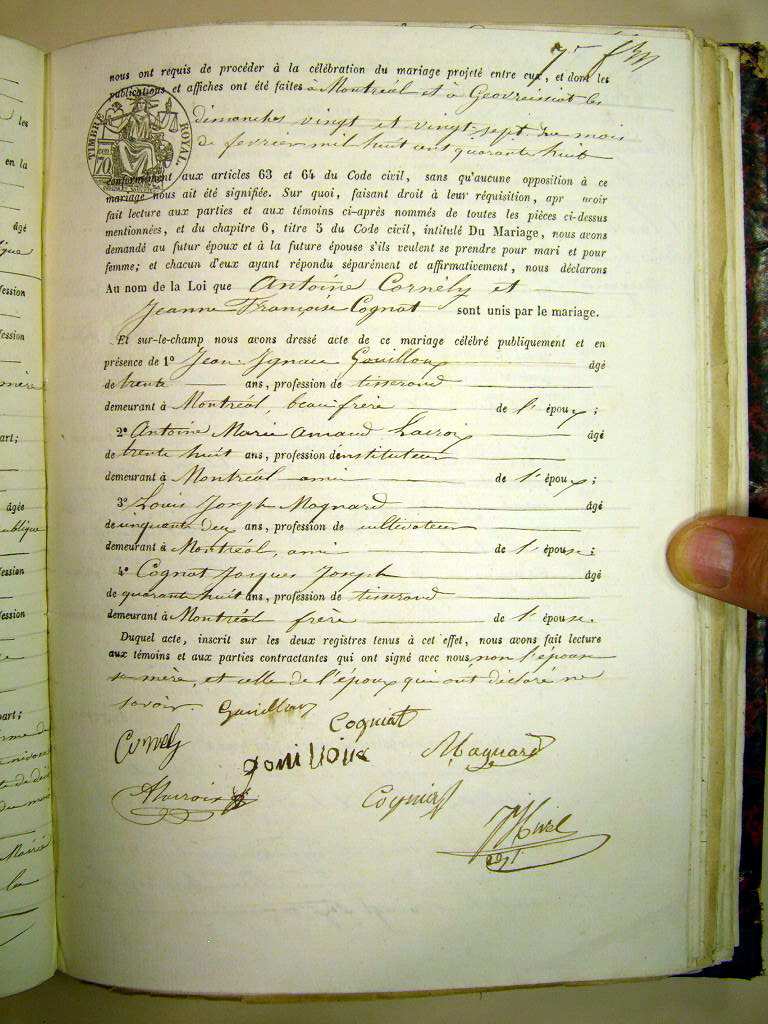 7.e f.t
nous ont requis de procéder à la célébration du mariage projeté entre eux, et dont les
publications et affiches ont été faites à Montréal et à Geovreissiat les
dimanches vingt et vingt-sept du mois
de février mil huit cent quarante huit
TIMBRE ROYAL
70
conformément aux articles 63 et 64 du Code civil, sans qu'aucune opposition à ce
mariage nous ait été signifiée. Sur quoi, faisant droit à leur réquisition, apr avoir
fait lecture aux parties et aux témoins ci-après nommés de toutes les pièces ci-dessus
mentionnées, et du chapitre 6, titre 5 du Code civil, intitulé Du Mariage, nous avons
demandé au futur époux et à la future épouse s'ils veulent se prendre pour mari et pour
femme; et chacun d'eux ayant répondu séparément et affirmativement, nous déclarons
Au nom de la Loi que Antoine Cornely et
Jeanne Françoise Cognat sont unis par le mariage.
Et sur-le-champ nous avons dressé acte de ce mariage célébré publiquement et en
présence de 1º Jean Ignace Gouilloux âgé
de trente ans, profession de tisserand
demeurant à Montréal, beau frère de l'époux;
2º Antoine Marie Amand Lacroix âgé
de trente huit ans, profession d'instituteur
demeurant à Montréal ami de l'époux;
3º Louis Joseph Magnard âgé
de cinquante deux ans, profession de cultivateur
demeurant à Montréal, ami de l'épouse;
4º Cognat Jacques Joseph âgé
de quarante huit ans, profession de tisserand
demeurant à Montréal frère de l'épouse.
Duquel acte, inscrit sur les deux registres tenus à cet effet, nous avons fait lecture
aux témoins et aux parties contractantes qui ont signé avec nous, non l'épouse
sa mère, et celle de l'époux qui ont déclaré ne
savoir. Gouilloux
Cogniat
Cornely
gouilloux
Magnard
Alacroix
Cogniat